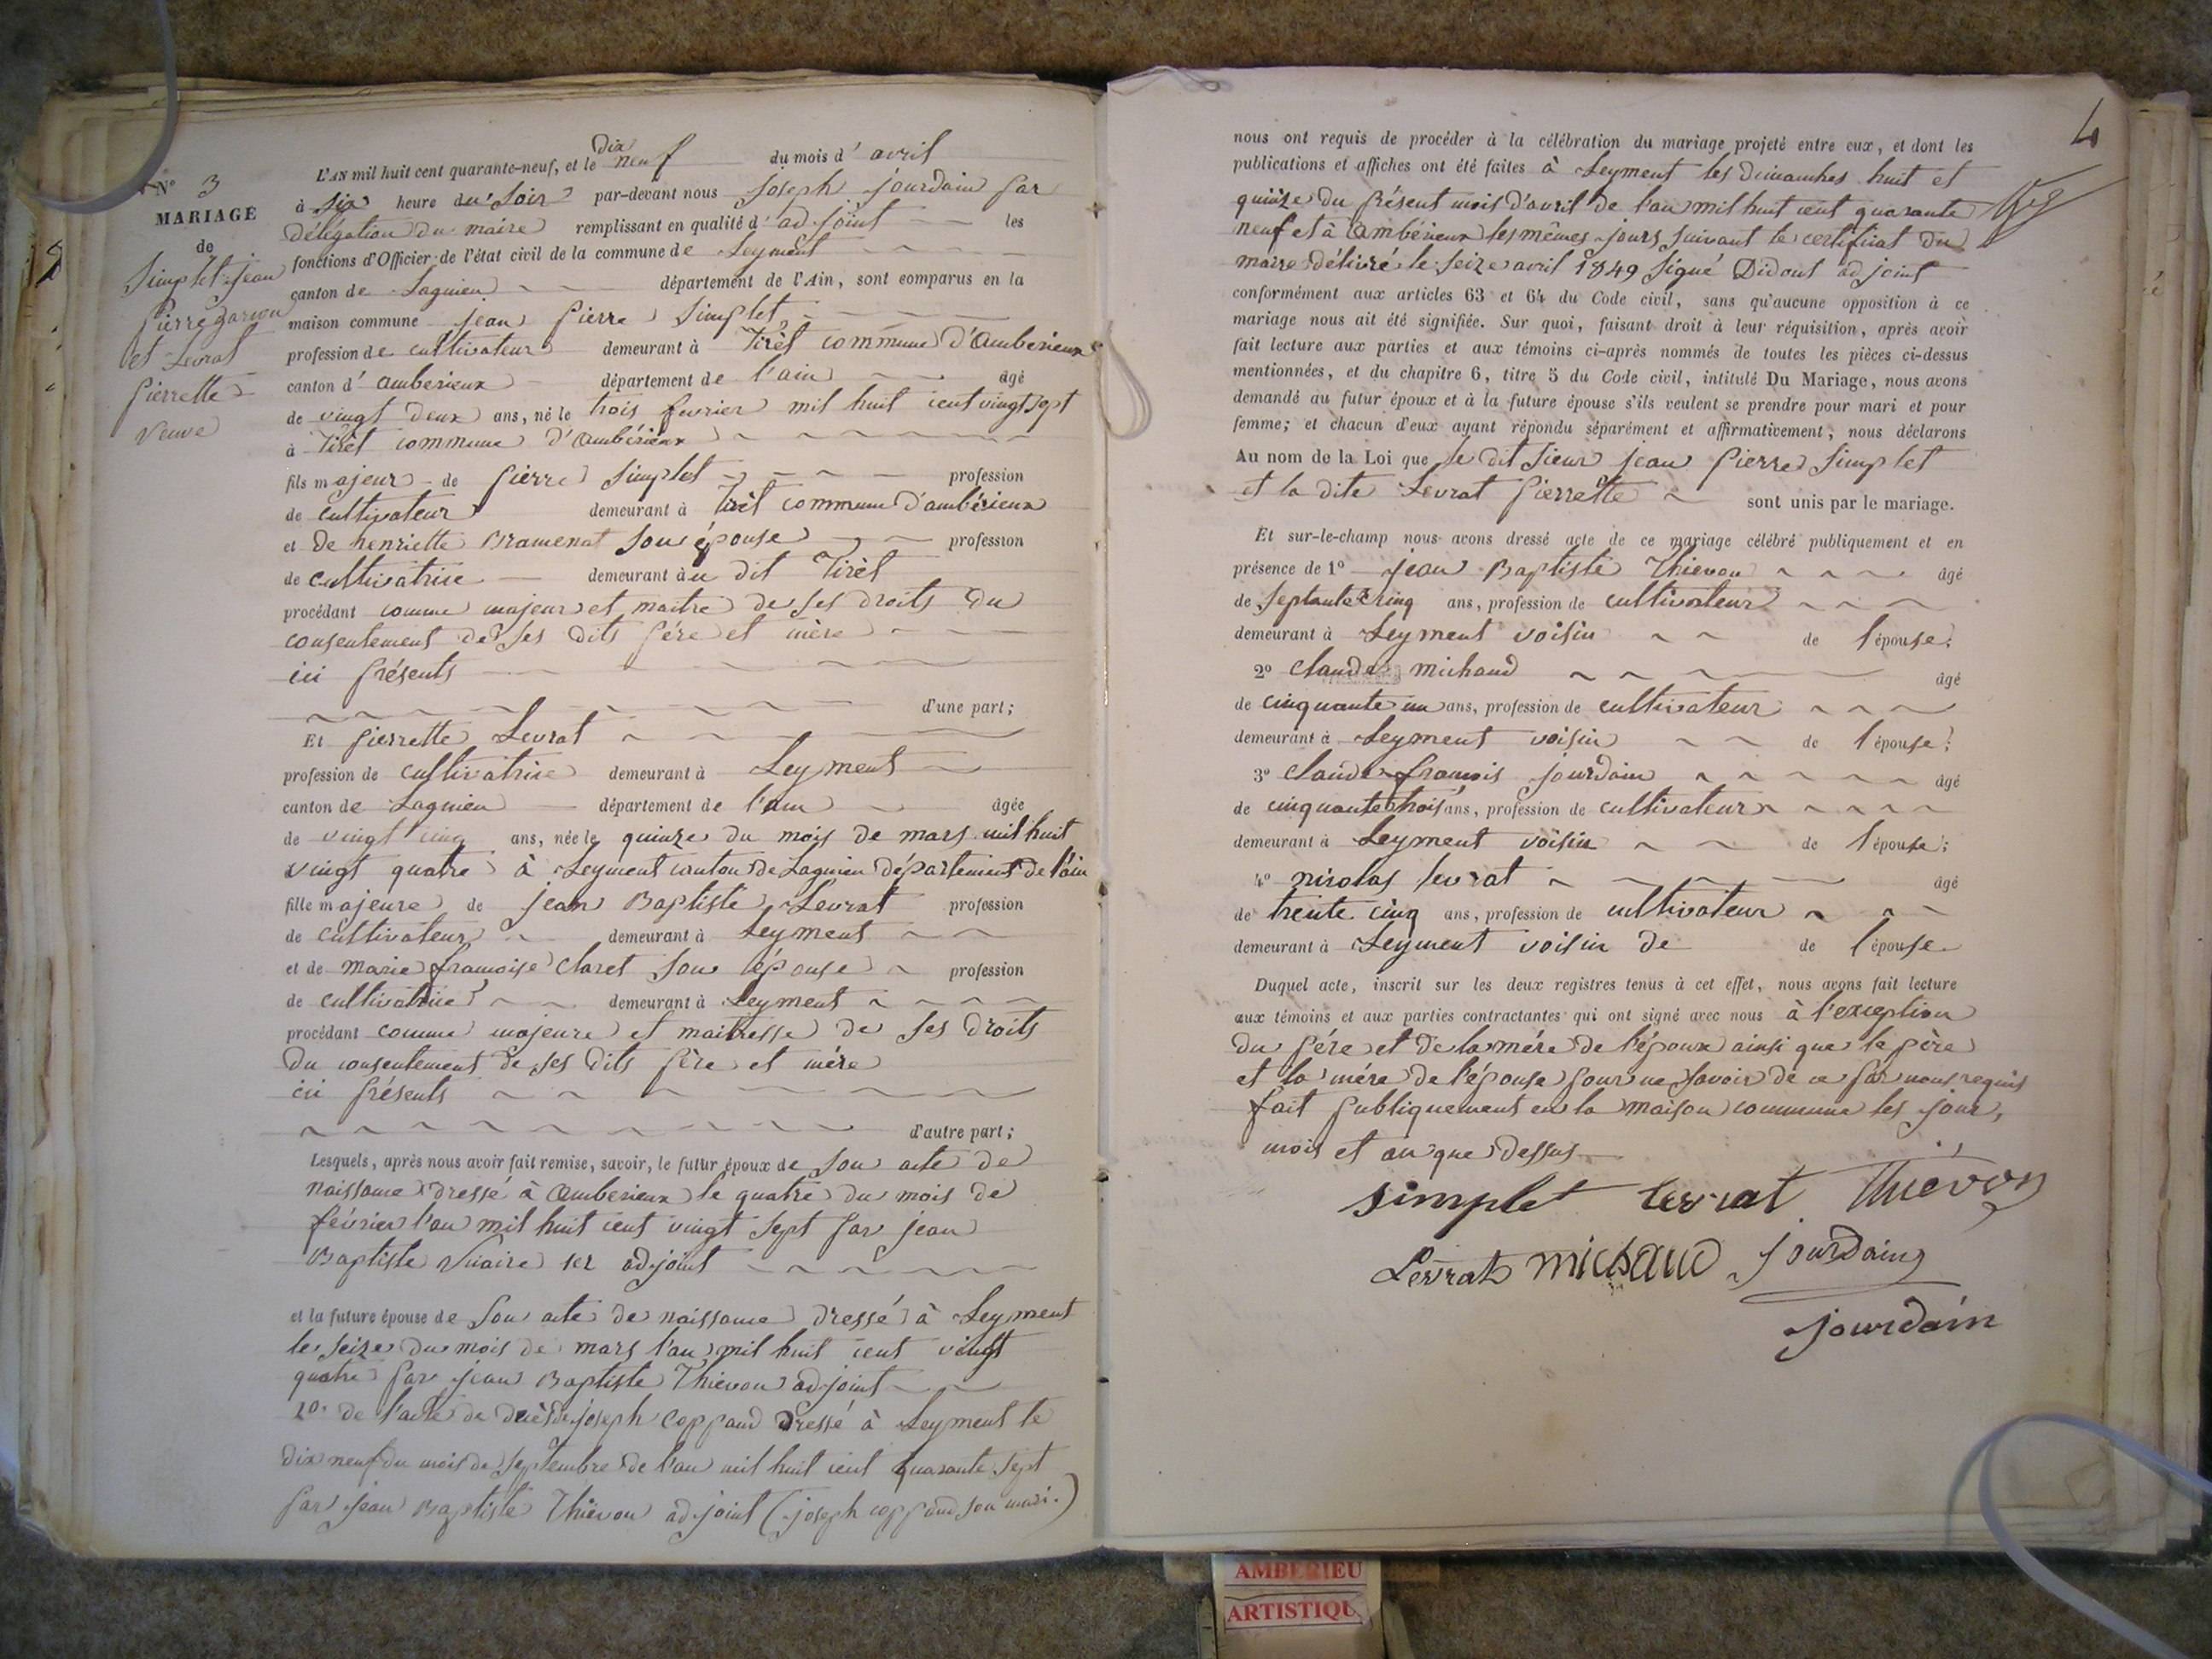 N° 3
MARIAGE
de
Simplet Jean
Pierre garçon
et Levrat
Pierrette
veuve
L'AN mil huit cent quarante-neuf, et le dix neuf du mois d'avril
à six heure du soir par-devant nous Joseph Jourdain par
délégation du maire remplissant en qualité d'adjoint les
fonctions d'Officier de l'état civil de la commune de Leyment
canton de Lagnieu département de l'Ain, sont comparus en la
maison commune jean pierre Simplet
profession de cultivateur demeurant à Tirèt commune d'amberieux
canton d'amberieux département de l'ain âgé
de vingt deux ans, né le trois fevrier mil huit cent vingt sept
à Tirèt commune d'ambérieux
fils majeur de pierre Simplet profession
de cultivateur demeurant à tirèt commune d'ambérieux
et de henriette Bramenat son épouse profession
de cultivatrice demeurant à u dit Tirèt
procédant comme majeur et maitre de ses droits du
consentement de ses dits père et mère
ici présents
d'une part;
Et pierrette Levrat
profession de cultivatrice demeurant à Leyment
canton de Lagnieu département de l'ain âgée
de vingt cinq ans, née le quinze du mois de mars mil huit
vingt quatre à Leyment canton de Lagnieu département de l'ain
fille majeure de jean Baptiste Levrat profession
de cultivateur demeurant à Leyment
et de marie françoise Claret son épouse profession
de cultivatrice demeurant à Leyment
procédant comme majeure et maitresse de ses droits
du consentement de ses dits père et mère
ici présents
d'autre part;
Lesquels, après nous avoir fait remise, savoir, le futur époux de son acte de
naissance dressé à amberieux le quatre du mois de
février l'an mil huit cent vingt sept par jean
Baptiste 1er adjoint
et la future épouse de son acte de naissance dressé à Leyment
le seize du mois de mars l'an mil huit cent vingt
quatre par jean Baptiste Thiévon adjoint
2o. de l'acte de décès de joseph coppaud dressé à Leyment le
dix neuf du mois de septembre de l'an mil huit cent quarante sept
par jean Baptiste Thiévon adjoint (joseph coppaud son mari.)
4
nous ont requis de procéder à la célébration du mariage projeté entre eux, et dont les
publications et affiches ont été faites à Leyment les dimanches huit et
quinze du présent mois d'avril de l'an mil huit cent quarante
neuf et à ambérieux les mêmes jours suivant le certificat du
maire délivré le seize avril 1849 signé Didout adjoint
conformément aux articles 63 et 64 du Code civil, sans qu'aucune opposition à ce
mariage nous ait été signifiée. Sur quoi, faisant droit à leur réquisition, après avoir
fait lecture aux parties et aux témoins ci-après nommés de toutes les pièces ci-dessus
mentionnées, et du chapitre 6, titre 5 du Code civil, intitulé Du Mariage, nous avons
demandé au futur époux et à la future épouse s'ils veulent se prendre pour mari et pour
femme; et chacun d'eux ayant répondu séparément et affirmativement, nous déclarons
Au nom de la Loi que le dit sieur jean pierre Simplet
et la dite Levrat pierrette sont unis par le mariage.
Et sur-le-champ nous avons dressé acte de ce mariage célébré publiquement et en
présence de 1° jean Baptiste Thievon âgé
de septante cinq ans, profession de cultivateur
demeurant à Leyment voisin de l'épouse;
2° Claude michaud âgé
de cinquante un ans, profession de cultivateur
demeurant à Leyment voisin de l'épouse;
3° Claude françois jourdain âgé
de cinquante trois ans, profession de cultivateur
demeurant à Leyment voisin de l'épouse;
4° nicolas levrat âgé
de trente cinq ans, profession de cultivateur
demeurant à Leyment voisin de de l'épouse
Duquel acte, inscrit sur les deux registres tenus à cet effet, nous avons fait lecture
aux témoins et aux parties contractantes qui ont signé avec nous à l'exception
du père et de la mére de l'époux ainsi que le père
et la mére de l'épouse pour ne savoir de ce par nous requis
fait publiquement en la maison commune les jour,
mois et an que dessus
simplet levrat Thiévon
Levrat michaud Jourdain
jourdain
AMBERIEU
ARTISTIQU